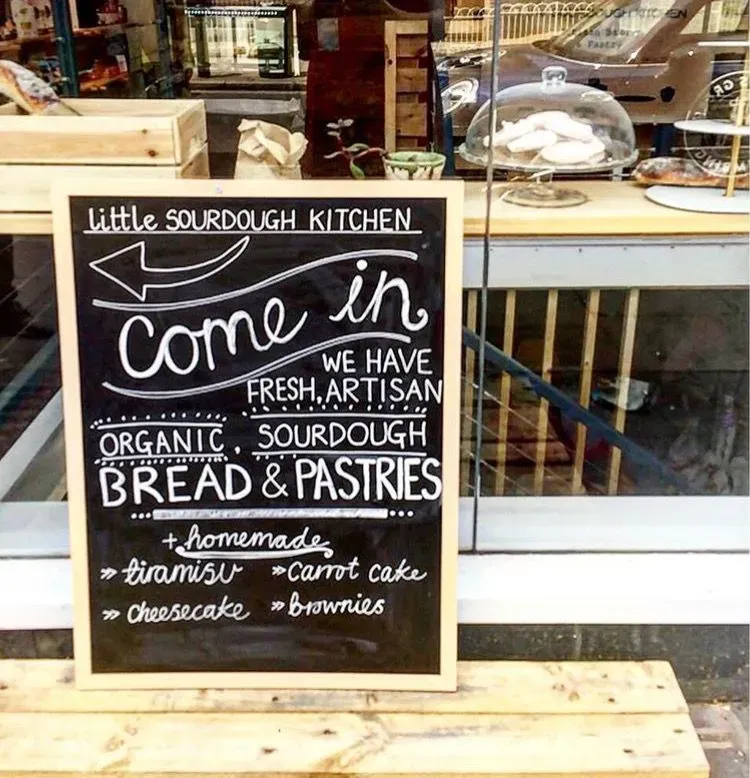 little SOURDOUGH KITCHEN
Come in
WE HAVE
FRESH, ARTISAN
ORGANIC, SOURDOUGH
BREAD & PASTRIES
+ homemade
» tiramisu » Carrot cake
» cheesecake » brownies